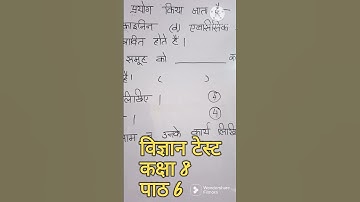 प्रयोग किया जाता है -
(d) एब्सिसिक
प्रभावित होते हैं।
समूह को ________ क
है। ( )
लिखिए । ④
- । ④
उनके कार्य लिखि
विज्ञान टेस्ट
कक्षा 8
पाठ 6